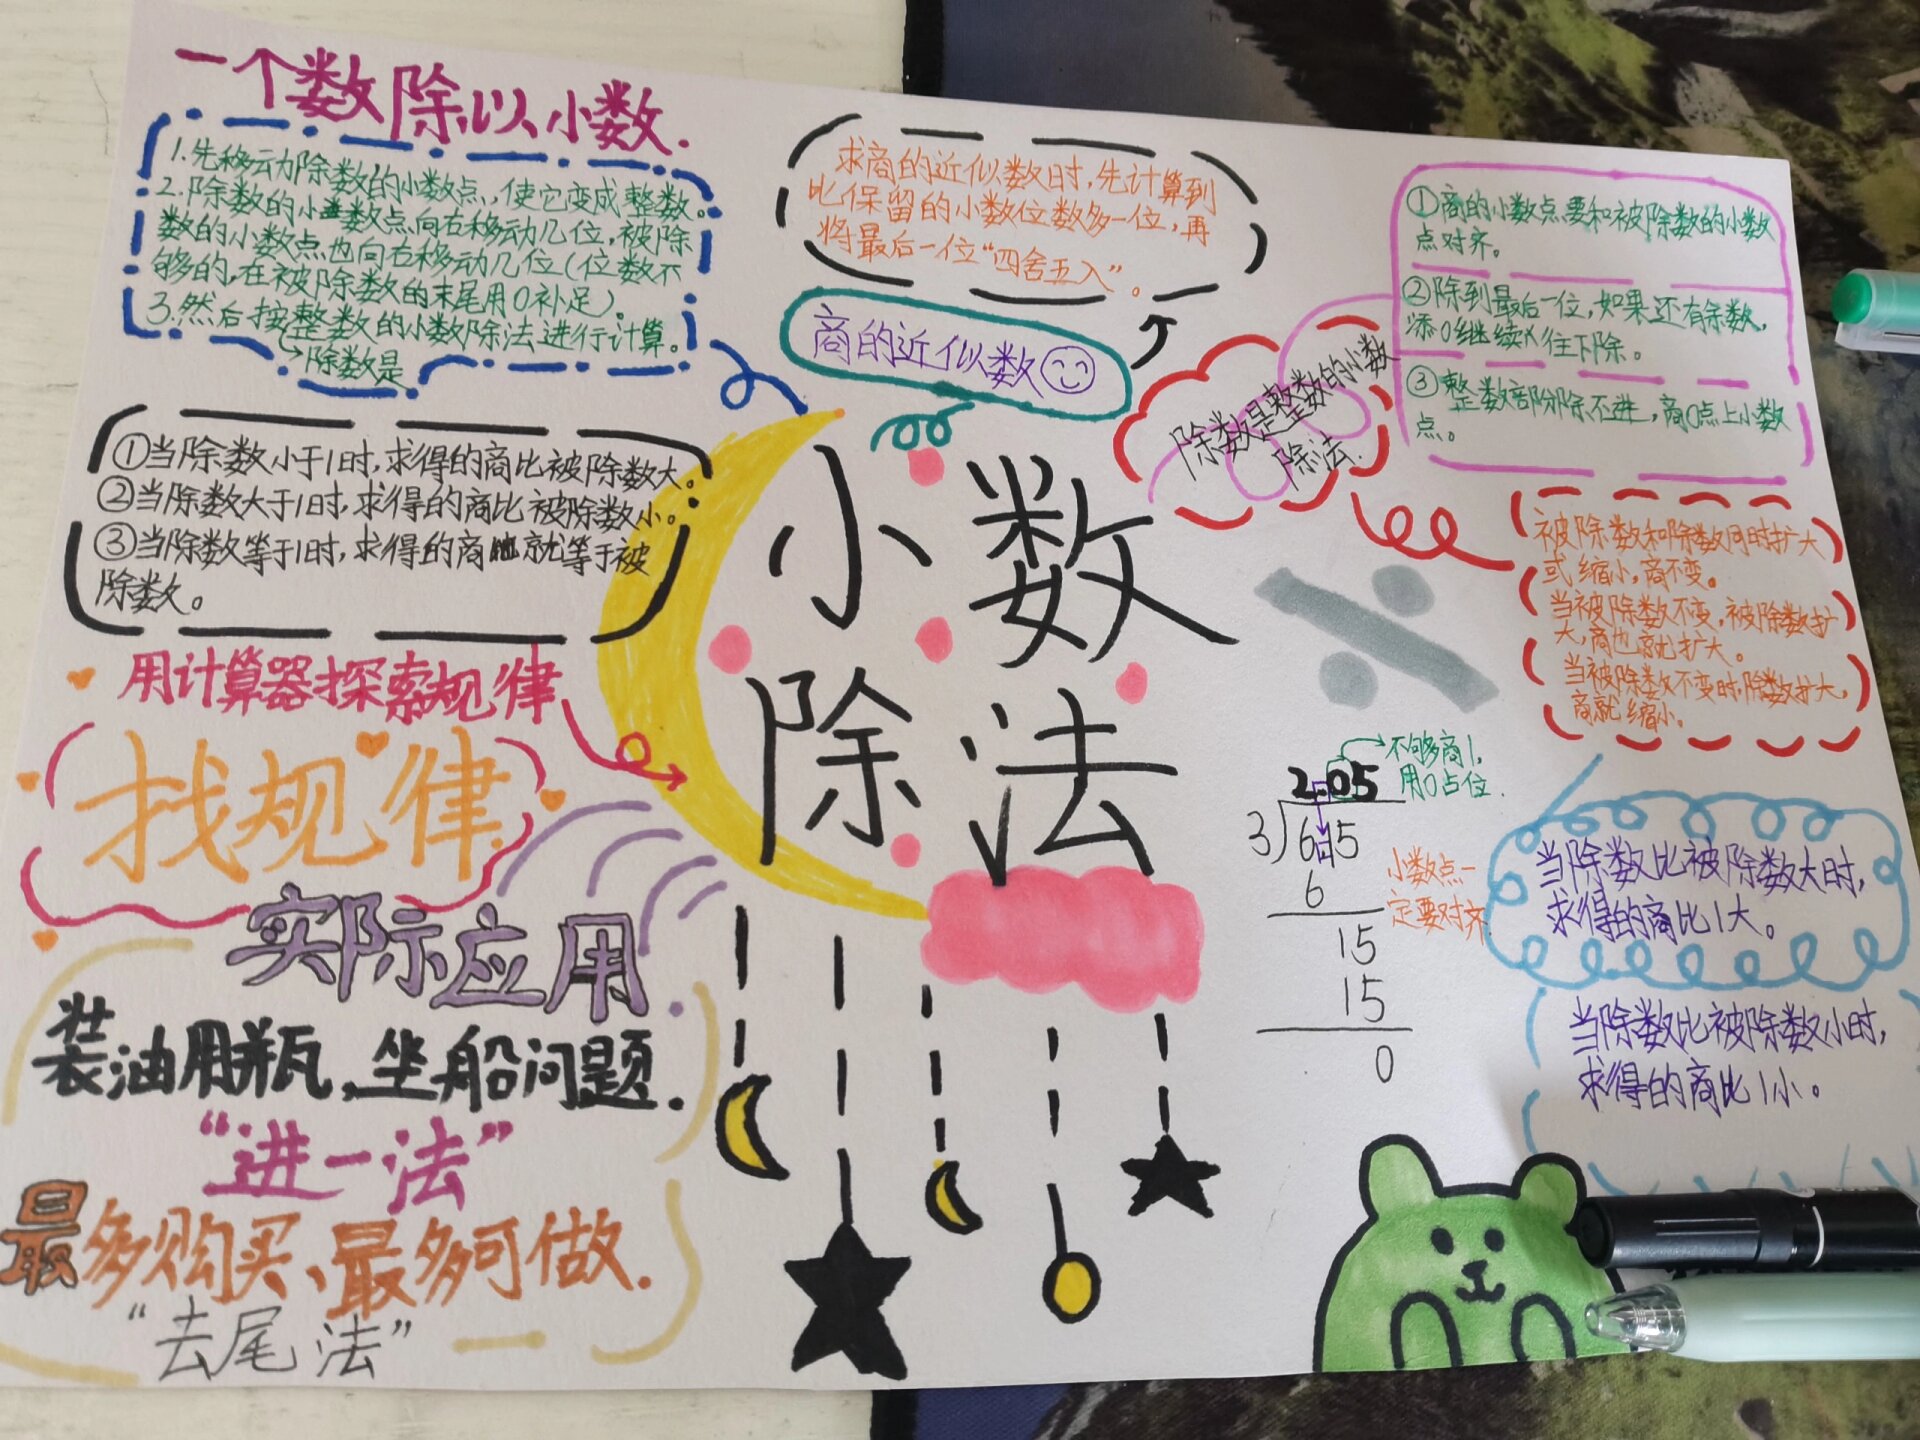 一个数除以小数.
1.先移动除数的小数点,使它变成整数。
2.除数的小数点向右移动几位,被除
数的小数点也向右移动几位(位数不
够的,在被除数的末尾用0补足)。
3.然后按整数的小数除法进行计算。
除数是
①当除数小于1时,求得的商比被除数大。
②当除数大于1时,求得的商比被除数小。
③当除数等于1时,求得的商就等于被
除数。
用计算器探索规律
找规律
实际应用
装油用瓶,坐船问题.
“进一法”
最多购买、最多可做.
“去尾法”
求商的近似数时,先计算到
比保留的小数位数多一位,再
将最后一位“四舍五入”。
商的近似数
小数
除法
除数是整数的小数
除法.
①商的小数点要和被除数的小数
点对齐。
②除到最后一位,如果还有余数,
添0继续往下除。
③整数部分除不进,商0点上小数
点。
被除数和除数同时扩大
或缩小,商不变。
当被除数不变,被除数扩
大,商也就扩大。
当被除数不变时,除数扩大,
商就缩小。
不够商1,
用0占位.
2.05
3 6.15
6
15
15
0
小数点一
定要对齐
当除数比被除数大时,
求得的商比1大。
当除数比被除数小时,
求得的商比1小。